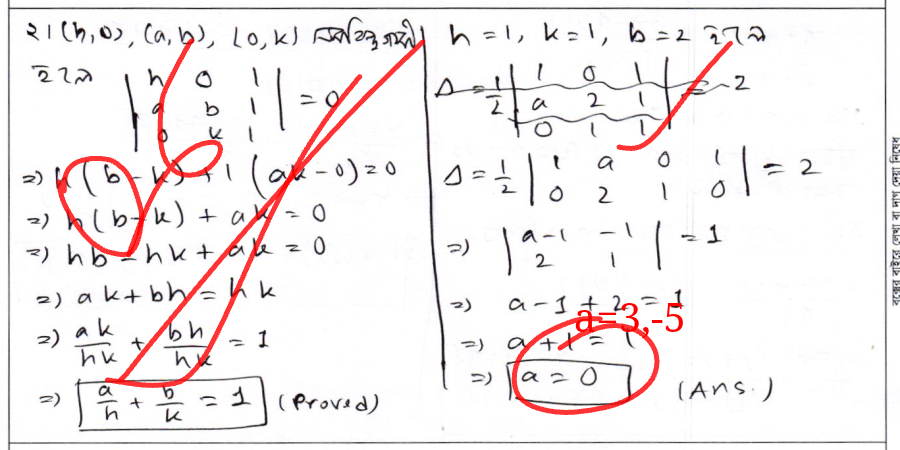 ২। (h,0), (a,b), (0,k) সমবিন্দুগামী
হলে
| h 0 1 |
| a b 1 | = 0
| 0 k 1 |
=> h (b-k) + 1 (ak-0) = 0
=> h(b-k) + ak = 0
=> hb - hk + ak = 0
=> ak + bh = hk
=> ak/hk + bh/hk = 1
=> a/h + b/k = 1 (Proved)
h = 1, k = 1, b = 2 হলে
Δ = 1/2 | 1 0 1 |
| a 2 1 | = 2
| 0 1 1 |
Δ = 1/2 | 1 a 0 1 | = 2
| 0 2 1 0 |
=> | a-1 -1 | = 1
| 2 1 |
=> a - 1 + 2 = 1
a=3,-5
=> a + 1 = 1
=> a = 0 (Ans.)
বক্সের বাইরে লেখা বা দাগ দেয়া নিষেধ